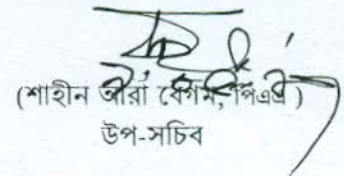 (শাহীন আরা বেগম, পিএএ)
উপ-সচিব